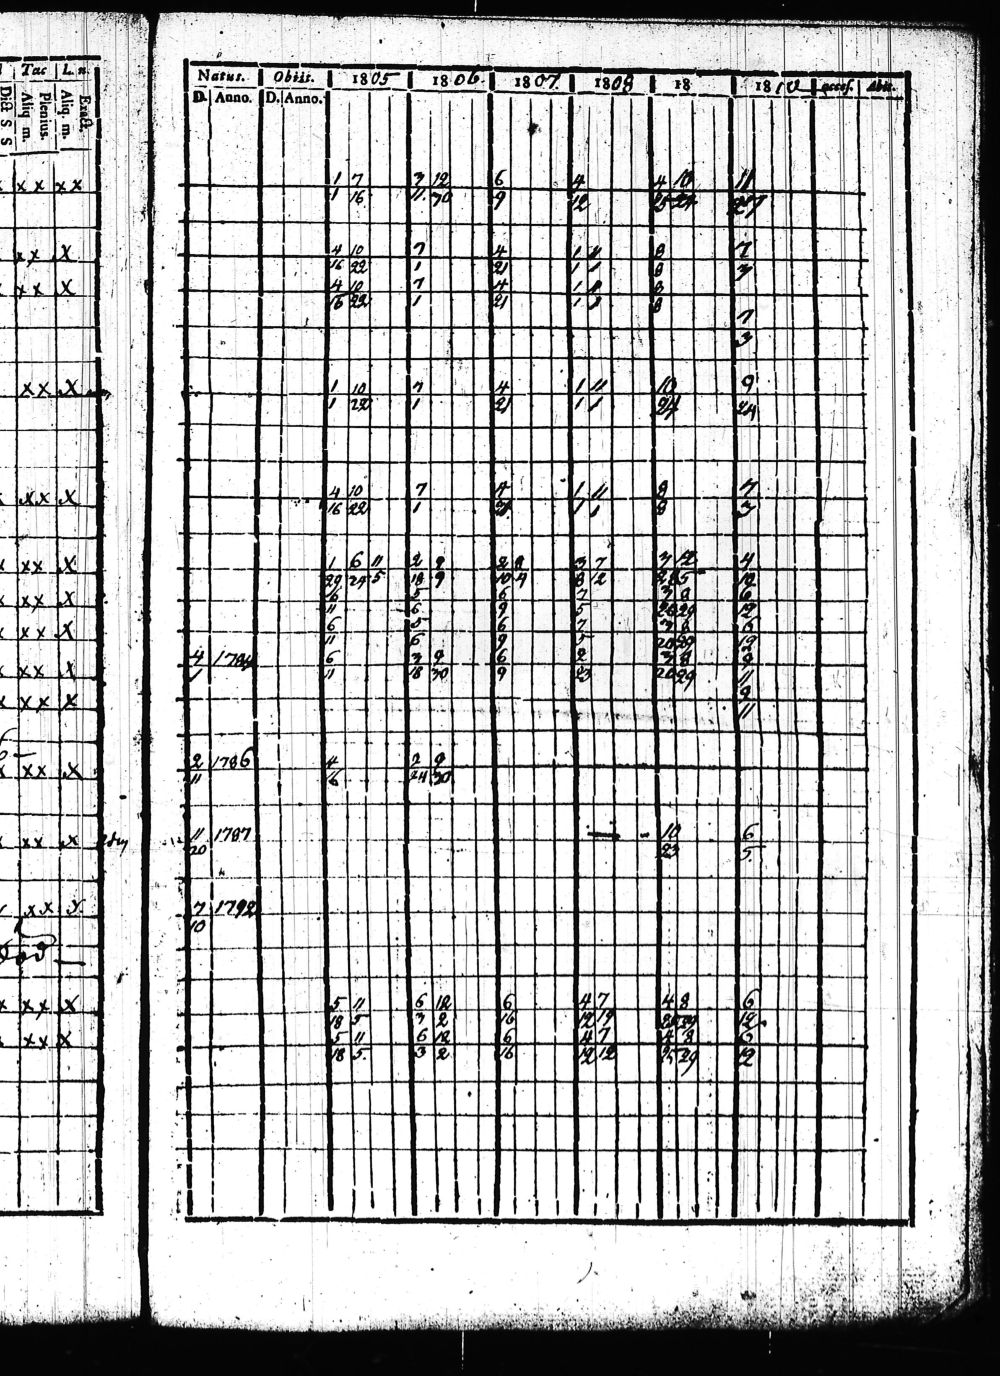 Tac L. n.
Dict S S Aliq. m. Plenius. Aliq. m. Exact.
Natus. Obiit. 1805 1806. 1807. 1808 18 1810 accef. Abit.
D. Anno. D. Anno.
x x x x 1 7 3 12 6 4 4 11
1 16 11 30 9 12 27
x x x 4 10 7 4 1 11 8 7
16 22 1 21 1 1 8 3
x x x 4 10 7 4 1 11 8
16 22 1 21 1 1 8
7
3
x x x 1 10 7 4 1 11 10 9
1 22 1 21 1 1 24 24
x x x 4 10 7 4 1 11 8 7
16 22 1 21 1 1 8 3
x x x 1 6 11 2 9 2 8 3 7 3 4
29 24 5 18 9 10 4 8 12 12
x x x 6 5 6 7 3 8 6
11 6 9 5 20 29 12
x x x 6 5 6 7 3 8 6
11 6 9 5 20 29 12
x x x 4 1784 6 3 9 6 2 3 8 9
1 11 18 30 9 23 20 29 11
x x x 9
11
x x x 2 1786 4 2 9
11 16 24 30
x x x 11 1787 10 6
20 23 5
x x 7 1792
10
x x x 5 11 6 12 6 4 7 4 8 6
18 5 3 2 16 12 19 29 12
x x x 5 11 6 12 6 4 7 4 8 6
18 5 3 2 16 12 12 25 29 12